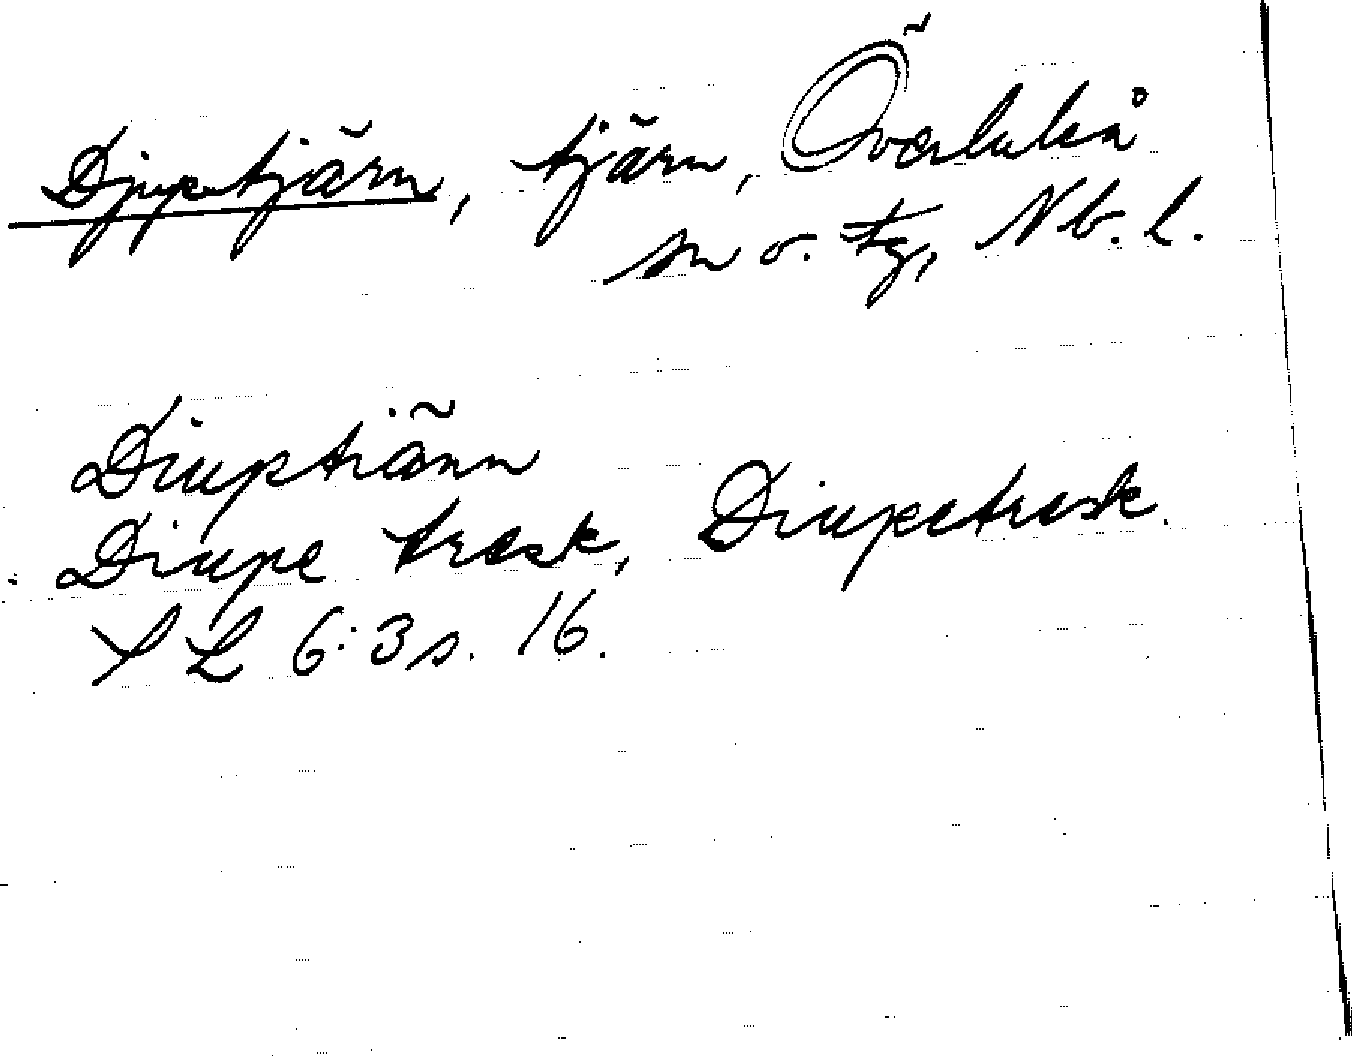 Djuptjärn, tjärn, Överluleå
sn o. tg, Nb. l.
Diuptiänn
Diupe træsk, Diupetresk.
SL 6:3 s. 16.